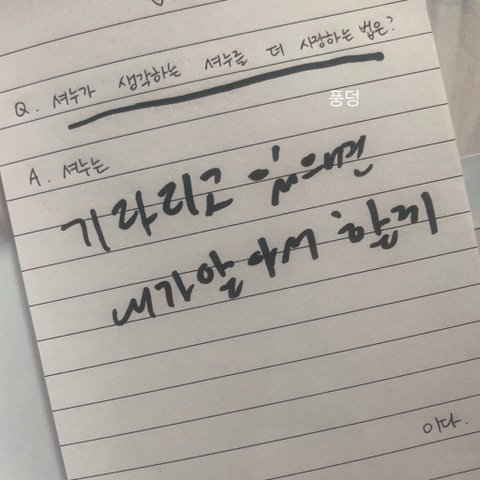 Q. 셔누가 생각하는 셔누를 더 사랑하는 법은?
풍덩
A. 셔누는
기다리고 있으면
내가 알아서 할게
이다.